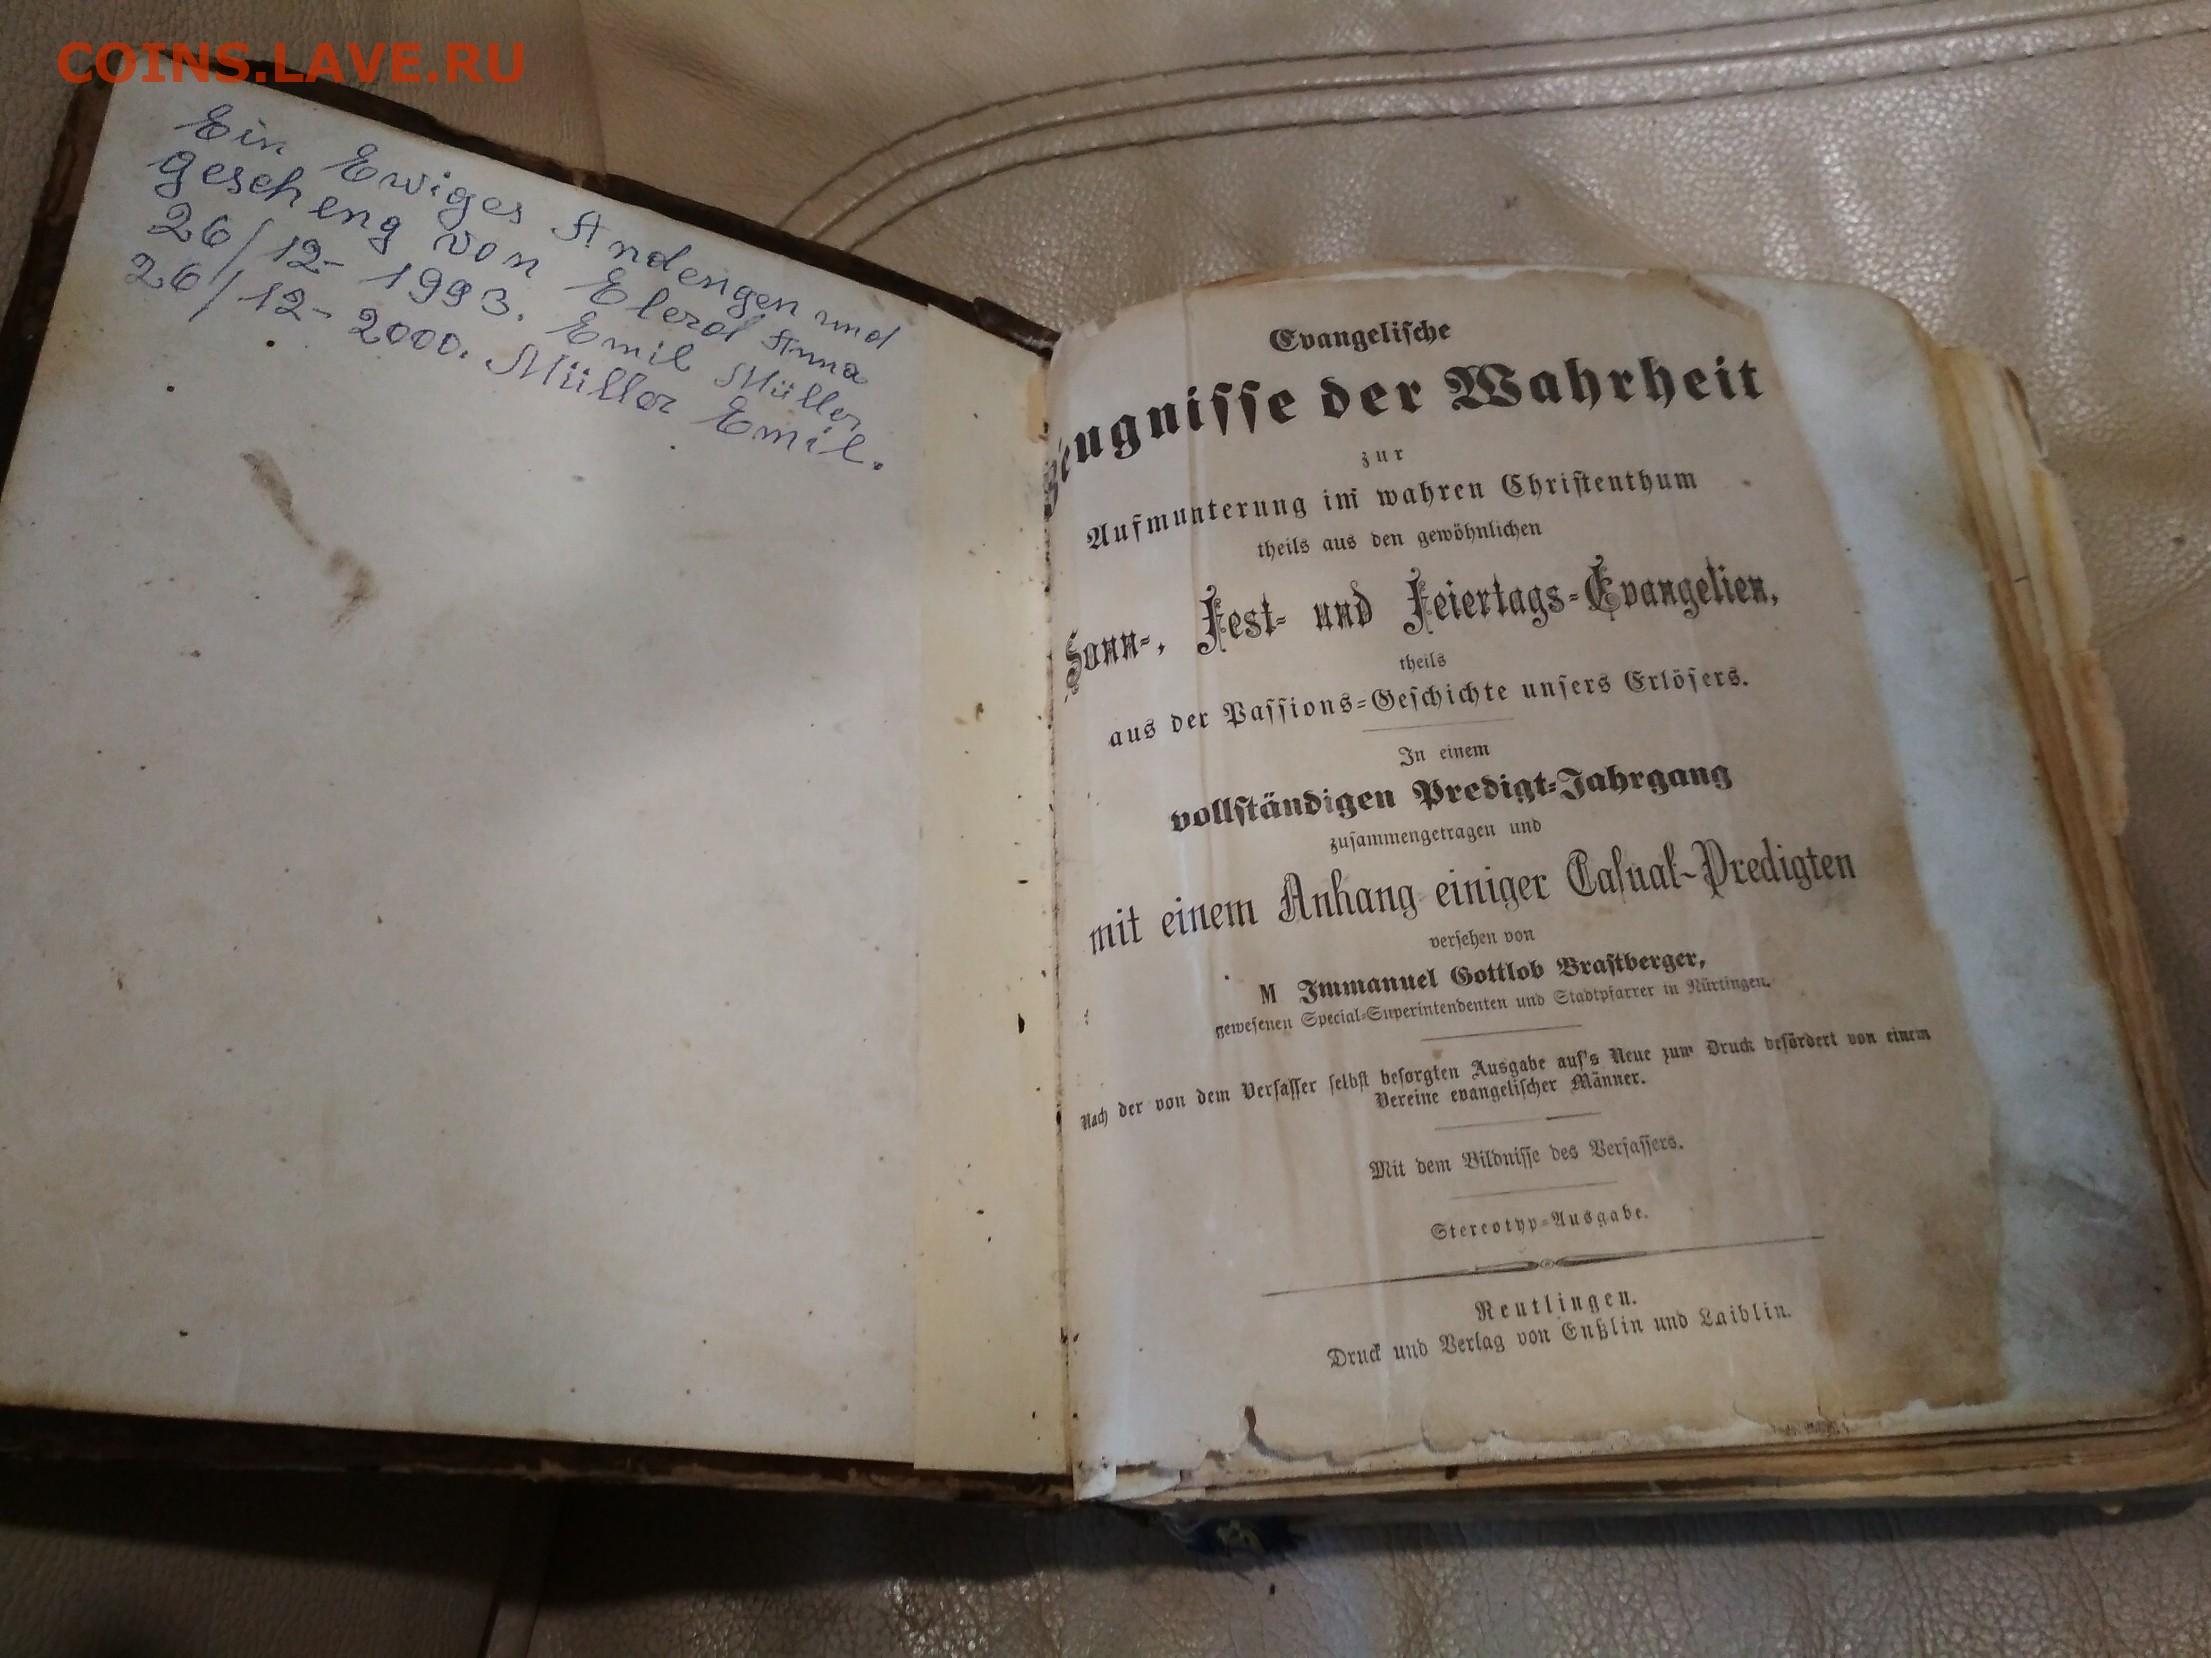 COINS.LAVE.RU
Ein Ewiges Andengen und
gescheng von Elerd Anna
26/12-1993. Emil Müller
26/12-2000. Müller Emil.
Evangeliſche
Zeugniſſe der Wahrheit
zur
Aufmunterung im wahren Chriſtenthum
theils aus den gewöhnlichen
Sonn-, Fest- und Feiertags-Evangelien,
theils
aus der Paſſions-Geſchichte unſers Erlöſers.
In einem
vollſtändigen Predigt-Jahrgang
zuſammengetragen und
mit einem Anhang einiger Caſual-Predigten
verſehen von
M Immanuel Gottlob Braſtberger,
geweſenen Special-Superintendenten und Stadtpfarrer in Nürtingen.
Nach der von dem Verfaſſer ſelbſt beſorgten Ausgabe auf's Neue zum Druck befördert von einem
Vereine evangeliſcher Männer.
Mit dem Bildniſſe des Verfaſſers.
Stereotyp-Ausgabe.
Reutlingen.
Druck und Verlag von Enßlin und Laiblin.